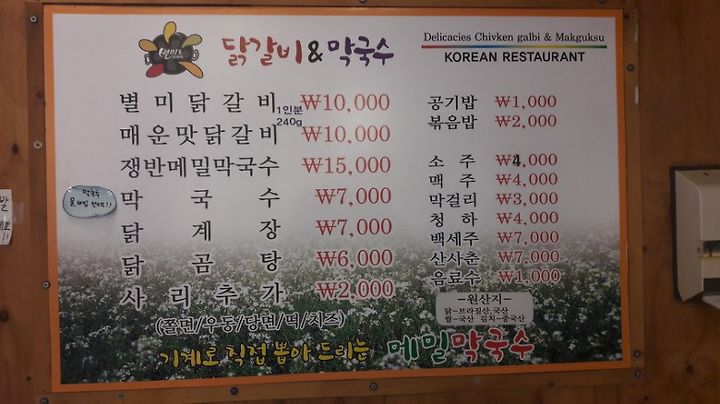 별미
닭갈비&막국수
Delicacies Chivken galbi & Makguksu
KOREAN RESTAURANT
별미닭갈비 1인분 240g ₩10,000
매운맛닭갈비 ₩10,000
쟁반메밀막국수 ₩15,000
막국수 ₩7,000
닭계장 ₩7,000
닭곰탕 ₩6,000
사리추가 ₩2,000
(쫄면/우동/당면/떡/치즈)
공기밥 ₩1,000
볶음밥 ₩2,000
소주 ₩4,000
맥주 ₩4,000
막걸리 ₩3,000
청하 ₩4,000
백세주 ₩7,000
산사춘 ₩7,000
음료수 ₩1,000
-원산지-
닭-브라질산,국산
쌀-국산 김치-중국산
기계로 직접 뽑아 드리는 메밀막국수
막국수